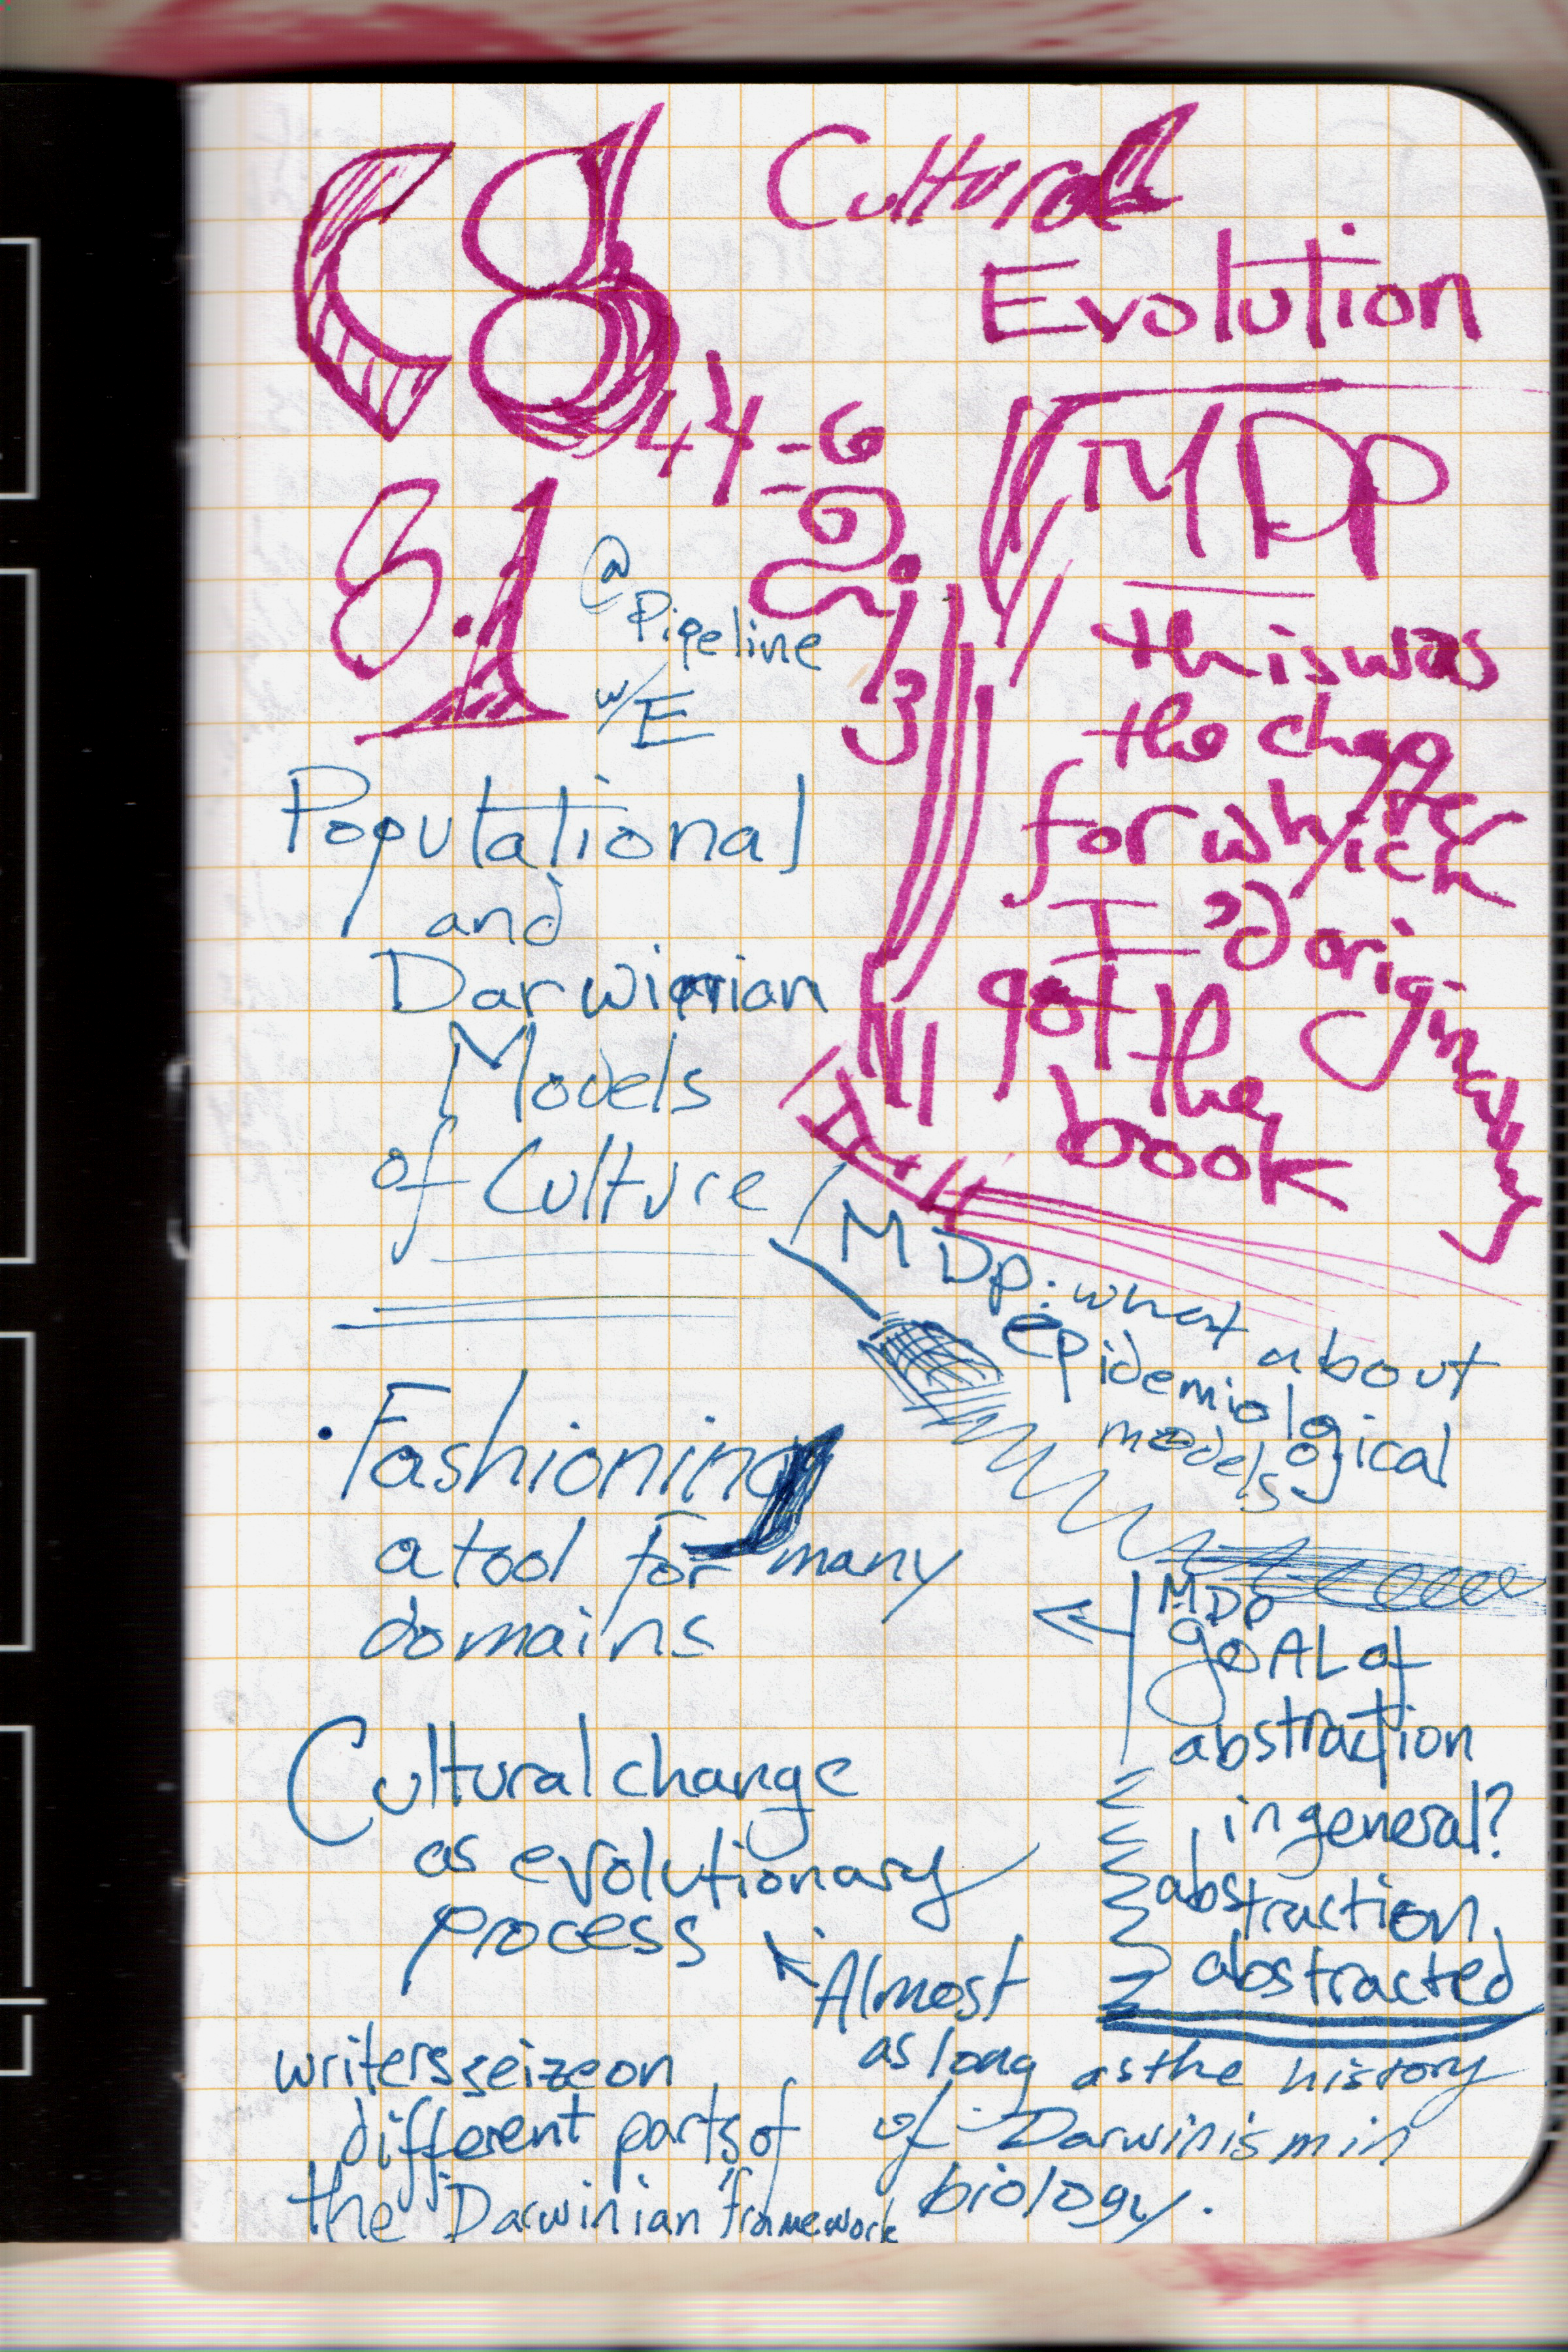 C8
Cultural
Evolution
44-6
8.1
@
Pipeline
w/E
MDp
this was
the chapter
for which
I'd originally
got the
book
Populational
and
Darwinian
Models
of Culture
MDp: what about
epidemiological
models
• Fashioning
a tool for many
domains
MDp
goAL of
abstraction
in general?
abstraction
abstracted
Cultural change
as evolutionary
process
Almost
as long as the history
of Darwinism in
biology.
writers seize on
different parts of
the "Darwinian" framework